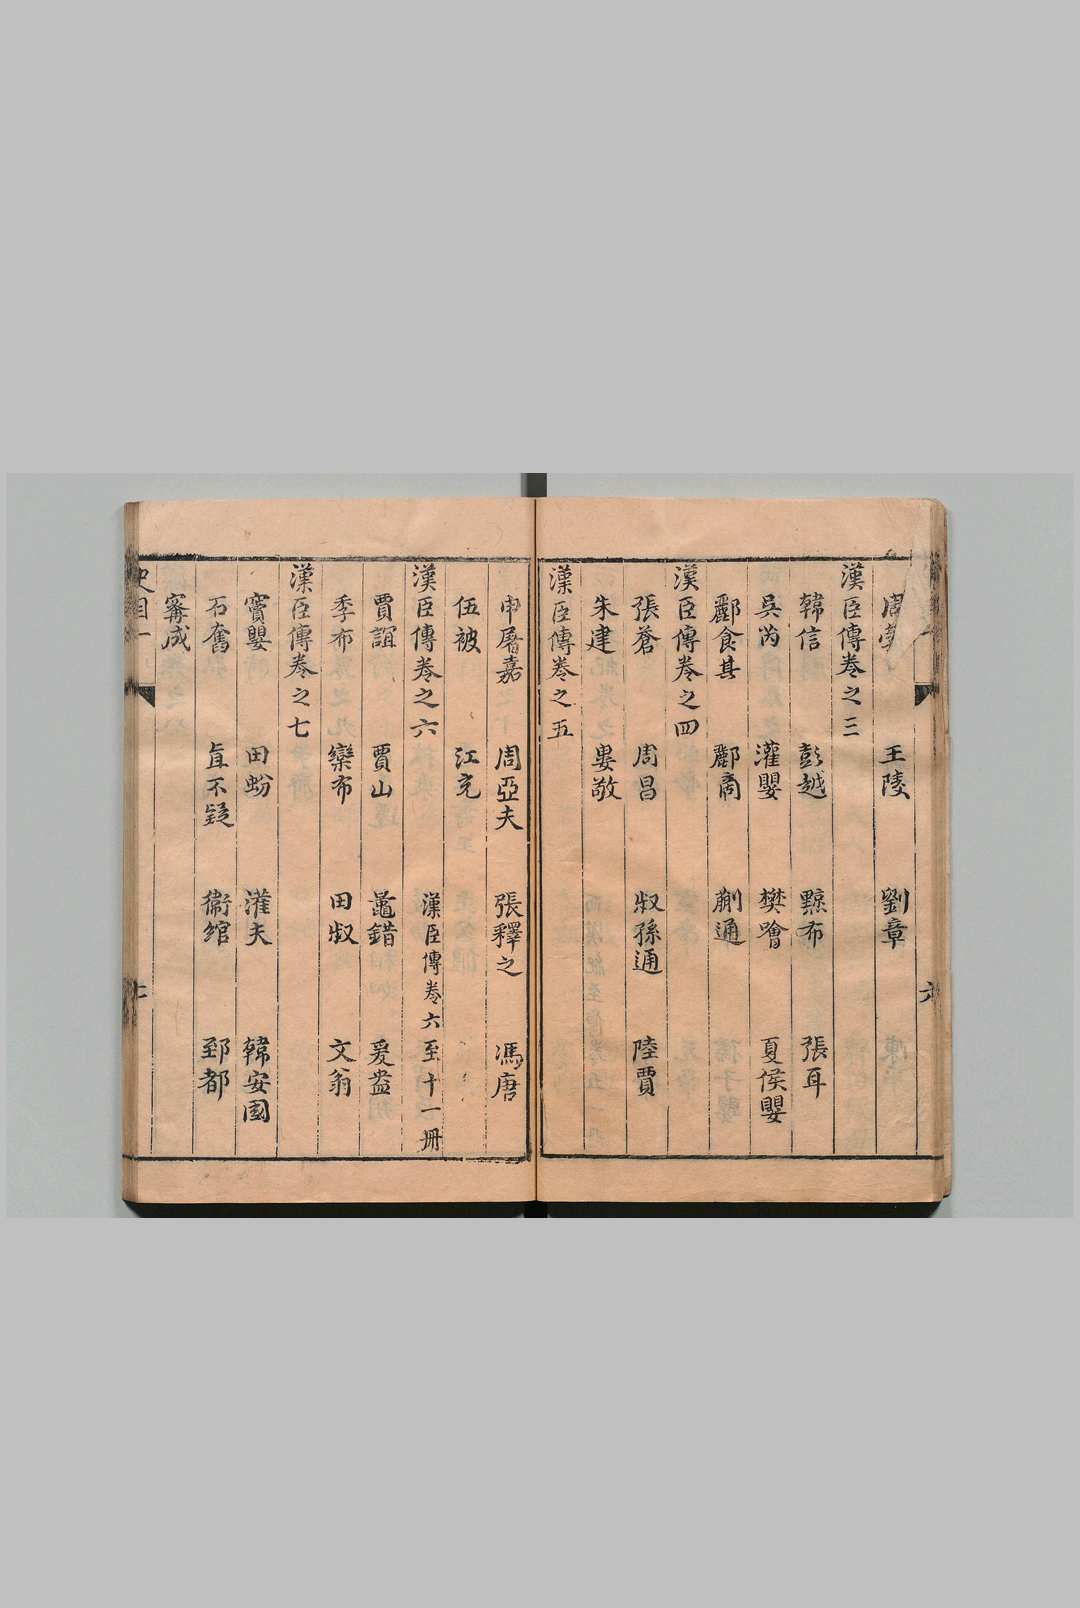 周勃 王陵 劉章
漢臣傳卷之三
韓信 彭越 黥布 張耳
吳芮 灌嬰 樊噲 夏侯嬰
酈食其 酈商 蒯通
漢臣傳卷之四
張蒼 周昌 叔孫通 陸賈
朱建 婁敬
漢臣傳卷之五
申屠嘉 周亞夫 張釋之 馮唐
伍被 江充
漢臣傳卷之六 漢臣傳卷六至十一冊
賈誼 賈山 鼂錯 爰盎
季布 欒布 田叔 文翁
漢臣傳卷之七
竇嬰 田蚡 灌夫 韓安國
石奮 直不疑 衞綰 郅都
甯成
史目一
六